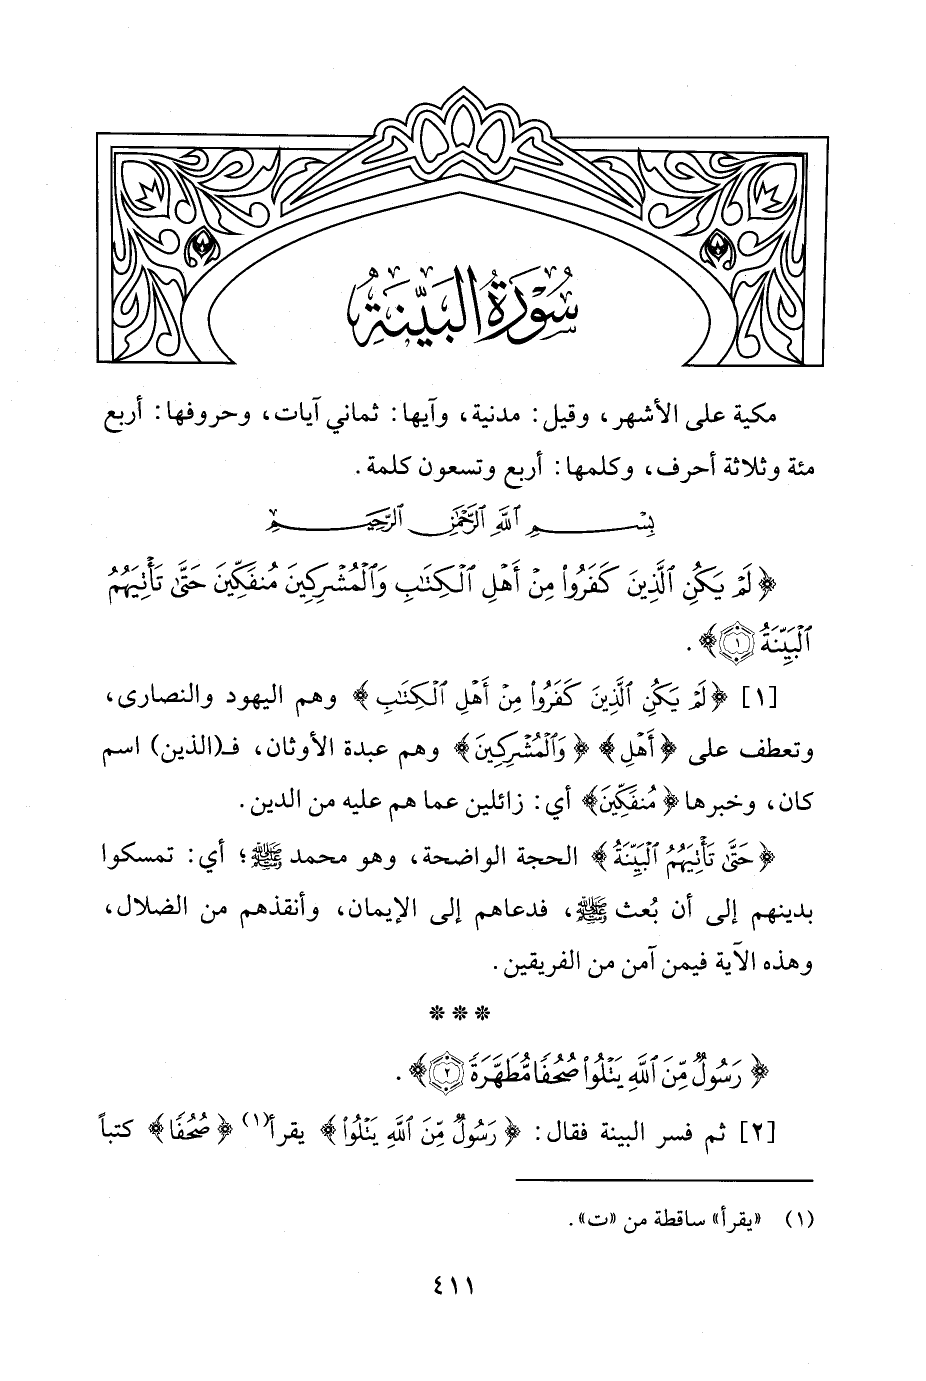 سُورَةُ البَيِّنَةِ
مكية على الأشهر، وقيل: مدنية، وآيها: ثماني آيات، وحروفها: أربع
مئة وثلاثة أحرف، وكلمها: أربع وتسعون كلمة.
بِسْمِ ٱللَّهِ ٱلرَّحْمَٰنِ ٱلرَّحِيمِ
﴿لَمْ يَكُنِ ٱلَّذِينَ كَفَرُوا۟ مِنْ أَهْلِ ٱلْكِتَٰبِ وَٱلْمُشْرِكِينَ مُنفَكِّينَ حَتَّىٰ تَأْتِيَهُمُ
ٱلْبَيِّنَةُ ۝١﴾.
[١] ﴿لَمْ يَكُنِ ٱلَّذِينَ كَفَرُوا۟ مِنْ أَهْلِ ٱلْكِتَٰبِ﴾ وهم اليهود والنصارى،
وتعطف على ﴿أَهْلِ﴾ ﴿وَٱلْمُشْرِكِينَ﴾ وهم عبدة الأوثان، فـ(الذين) اسم
كان، وخبرها ﴿مُنفَكِّينَ﴾ أي: زائلين عما هم عليه من الدين.
﴿حَتَّىٰ تَأْتِيَهُمُ ٱلْبَيِّنَةُ﴾ الحجة الواضحة، وهو محمد ﷺ؛ أي: تمسكوا
بدينهم إلى أن بُعث ﷺ، فدعاهم إلى الإيمان، وأنقذهم من الضلال،
وهذه الآية فيمن آمن من الفريقين.
* * *
﴿رَسُولٌ مِّنَ ٱللَّهِ يَتْلُوا۟ صُحُفًا مُّطَهَّرَةً ۝٢﴾.
[٢] ثم فسر البينة فقال: ﴿رَسُولٌ مِّنَ ٱللَّهِ يَتْلُوا۟﴾ يقرأ(١) ﴿صُحُفًا﴾ كتباً
(١) «يقرأ» ساقطة من «ت».
٤١١